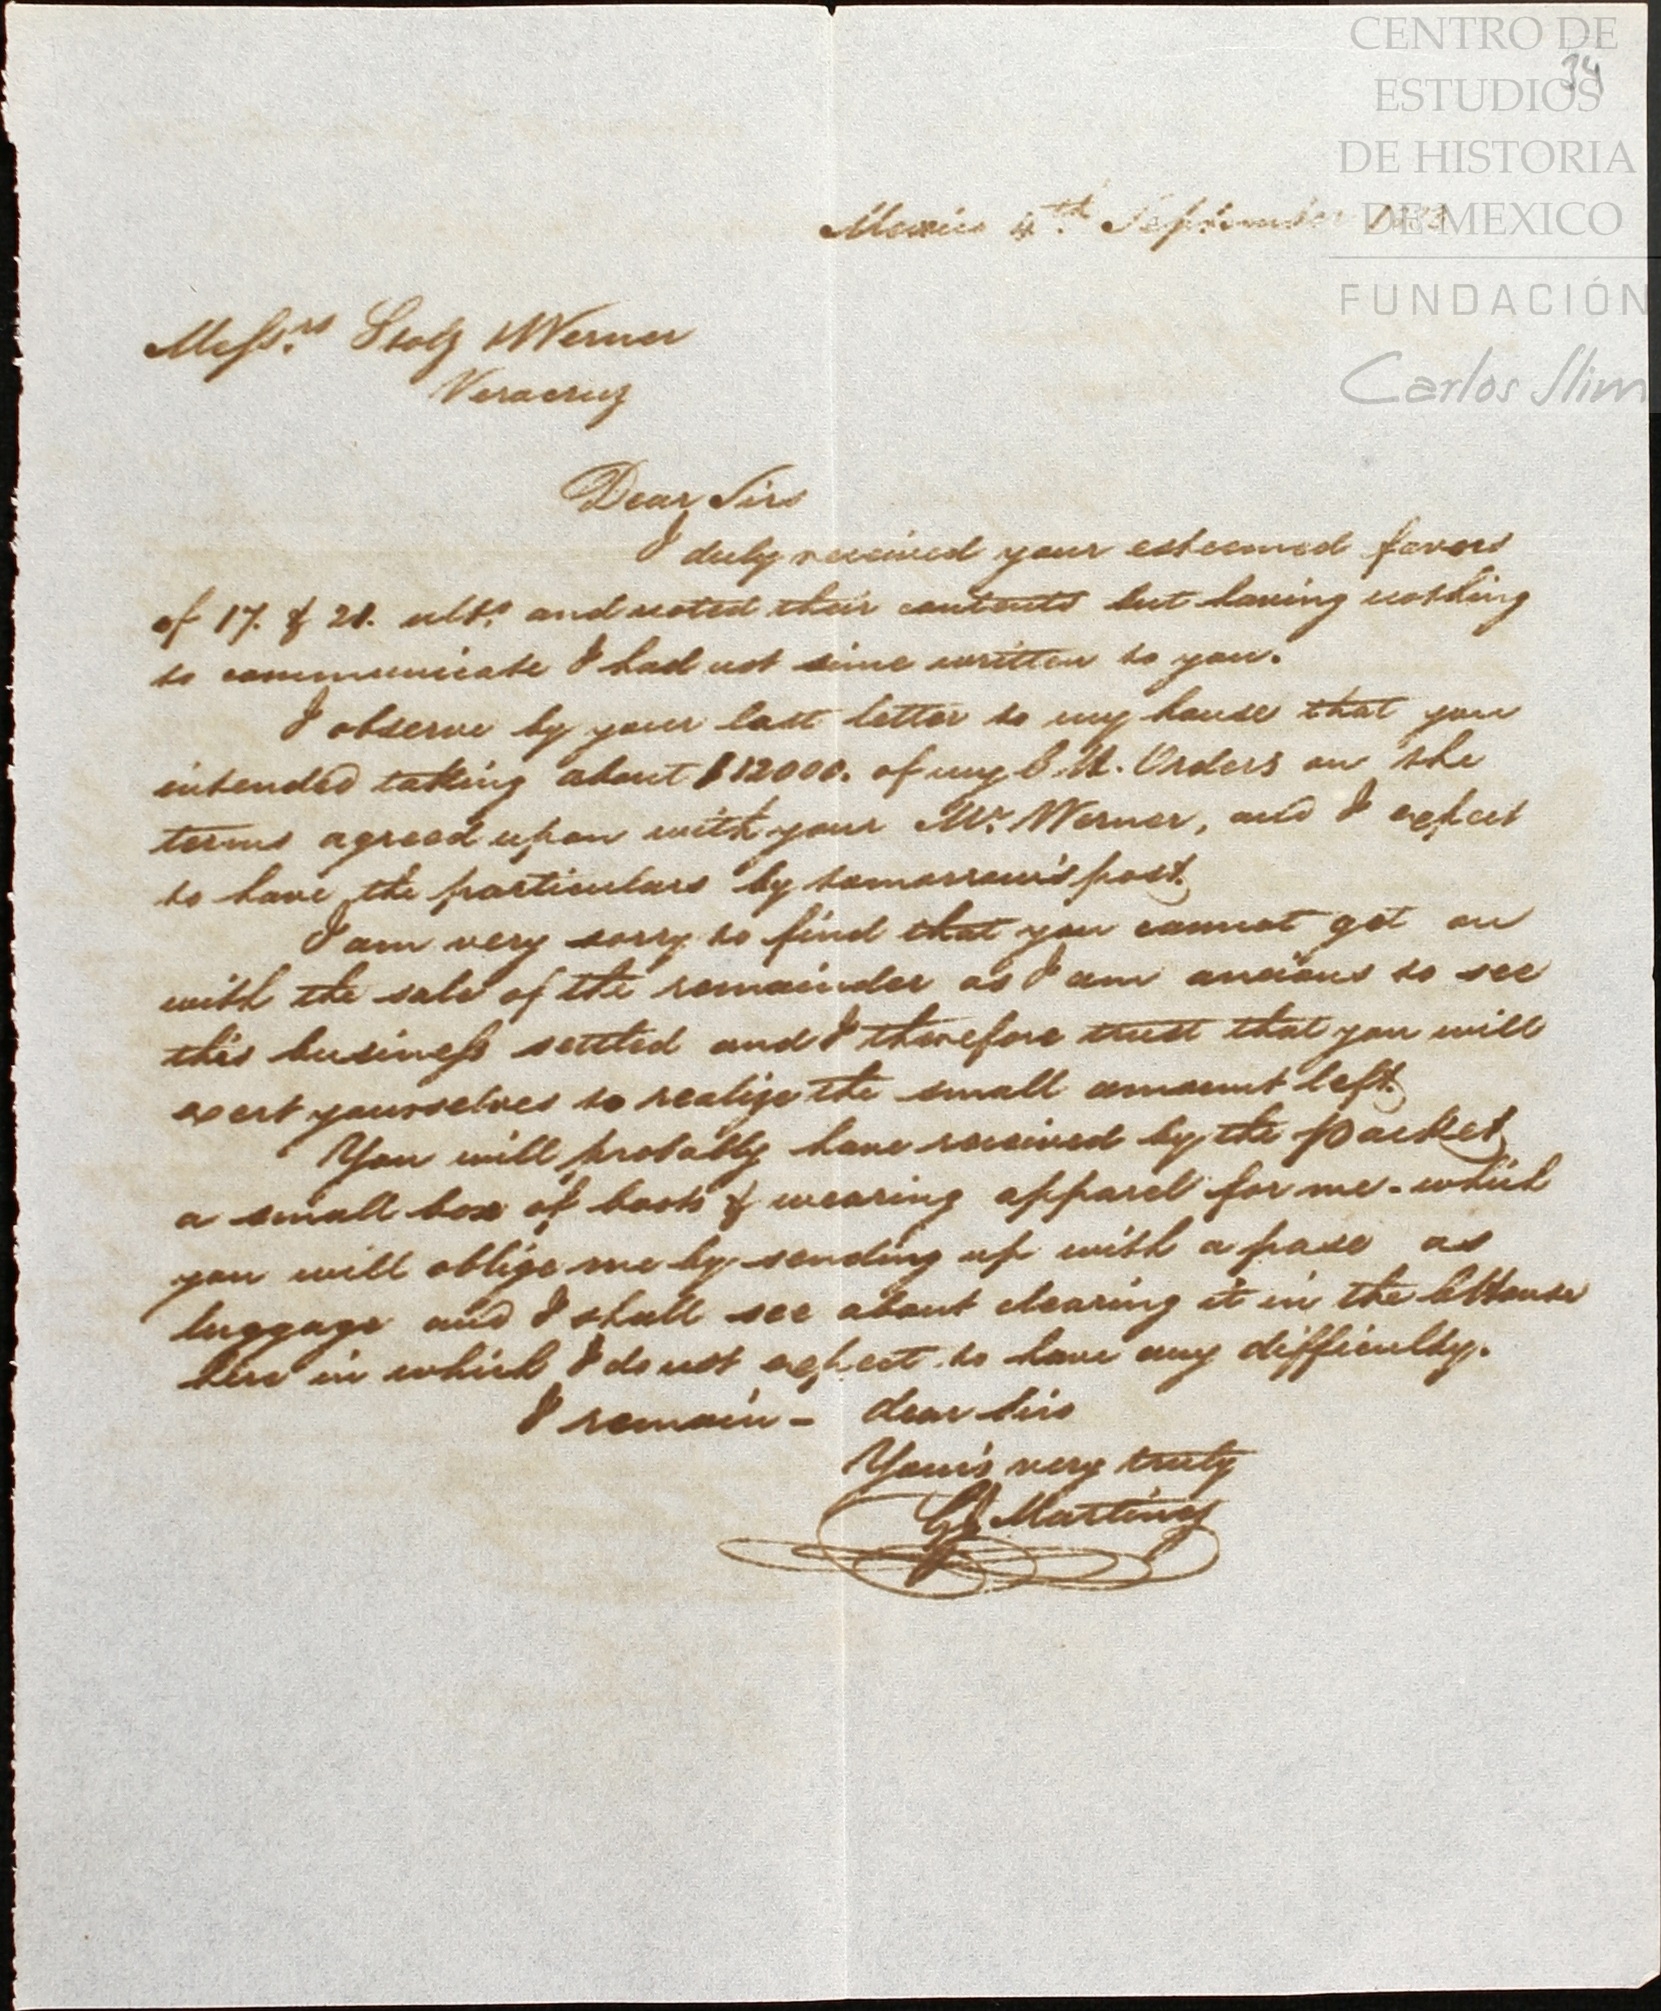 CENTRO DE
ESTUDIOS
DE HISTORIA
DE MEXICO
FUNDACIÓN
Carlos Slim
34
Mexico 4th September
Messrs Stolz & Werner
Veracruz
Dear Sirs
I duly received your esteemed favors
of 17. & 21. ulto. and noted their contents but having nothing
to communicate I had not since written to you.
I observe by your last letter to my house that you
intended taking about $12000. of my C.H. Orders on the
terms agreed upon with your Mr. Werner, and I expect
to have the particulars by tomorrow's post.
I am very sorry to find that you cannot get on
with the sale of the remainder as I am anxious to see
this business settled and I therefore trust that you will
exert yourselves to realize the small amount left.
You will probably have received by the packet
a small box of boots & wearing apparel for me - which
you will oblige me by sending up with a pase as
luggage and I shall see about clearing it in the CHouse
here in which I do not expect to have any difficulty.
I remain - dear Sirs
Your's very truly
Martinez